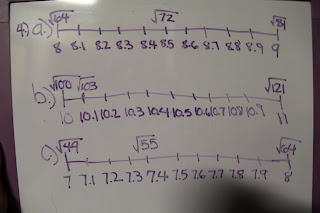 4.) a.) √64 √72 √81
8 8.1 8.2 8.3 8.4 8.5 8.6 8.7 8.8 8.9 9
b.) √100 √103 √121
10 10.1 10.2 10.3 10.4 10.5 10.6 10.7 10.8 10.9 11
c.) √49 √55 √64
7 7.1 7.2 7.3 7.4 7.5 7.6 7.7 7.8 7.9 8